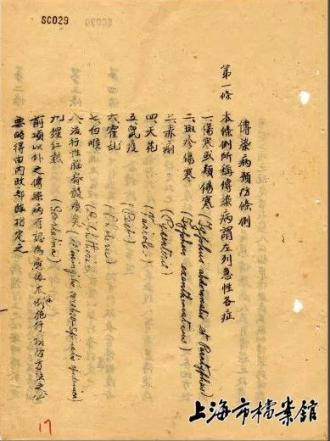 SC029
傳染病預防條例
第一條 本條例所稱傳染病謂左列急性各症
一、傷寒或類傷寒 (Typhus abdominalis et Paratyphus)
二、斑疹傷寒 (Typhus exanthematicus)
三、赤痢 (Dysenterie)
四、天花 (Variola)
五、鼠疫 (Pest)
六、霍亂
七、白喉 (Diphtherie)
八、流行性腦脊髓膜炎
九、猩紅熱 (Scarlatina)
前項以外之傳染病有認為應依本條例施行預防方法之必
要時得由內政部臨時指定之
17
上海市檔案館